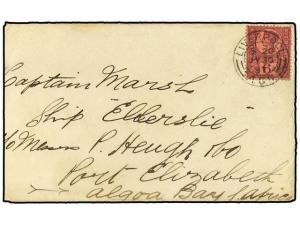 Captain Marsh
Ship "Elberslie"
c/o Messrs P. Heugh &Co
Port Elizabeth
Algoa Bay Africa